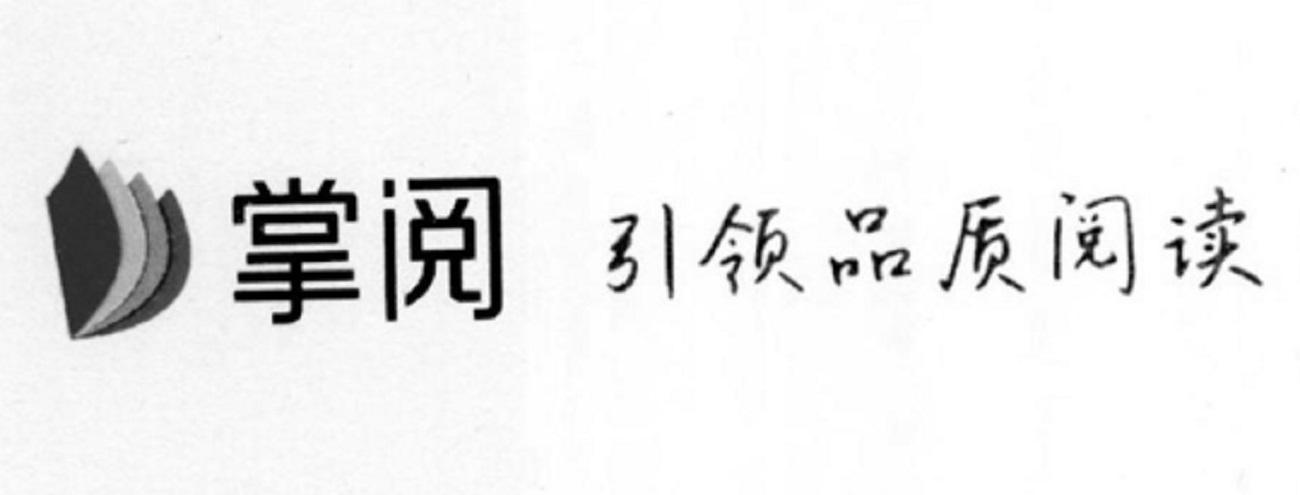 掌阅 引领品质阅读